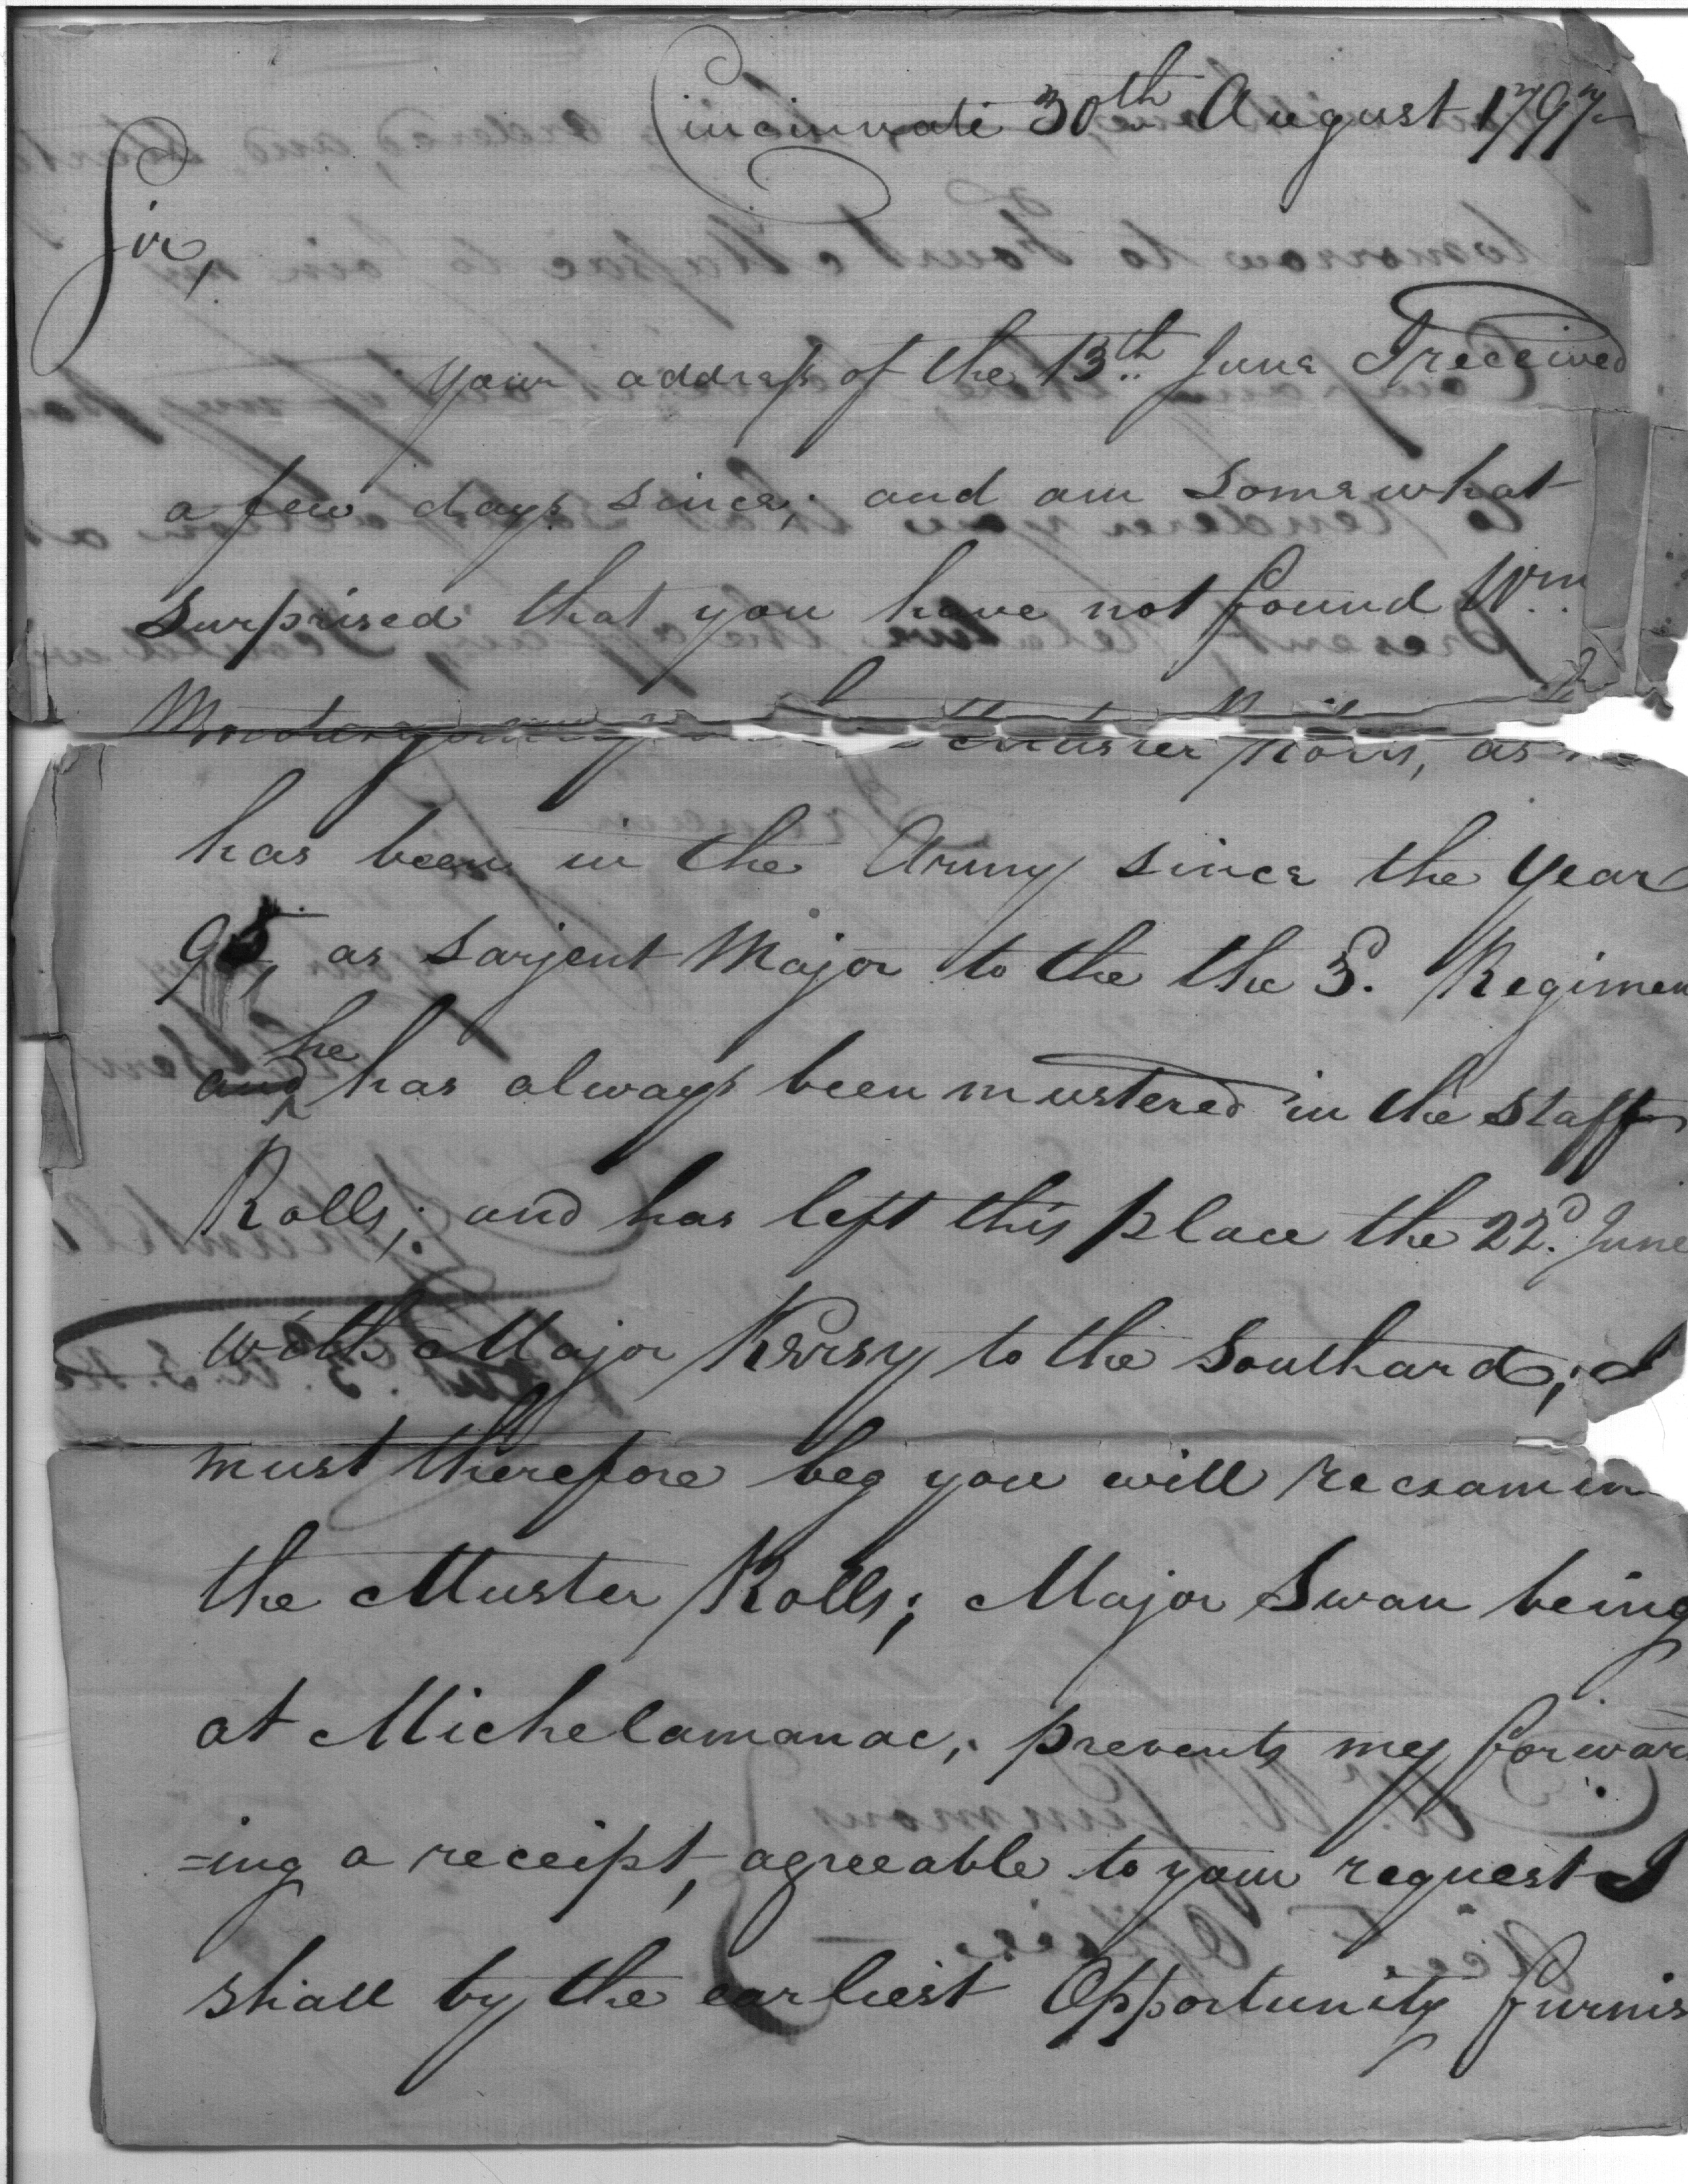 Cincinnati 30th August 1797
Sir,
Your address of the 13th June I received
a few days since; and am somewhat
surprised that you have not found Wm
Montgomery Muster Rolls, as
has been in the Army since the year
95, as sarjent Major to the the 3. Regimen
and he has always been mustered in the staff
Rolls; and has left this place the 22d. June
with Major Kersy to the Southard; I
must therefore beg you will recxamin
the Muster Rolls; Major Swan being
at Michelamanac, prevents my forward
=ing a receipt, agreeable to your request I
shall by the earliest Opportunity furnis